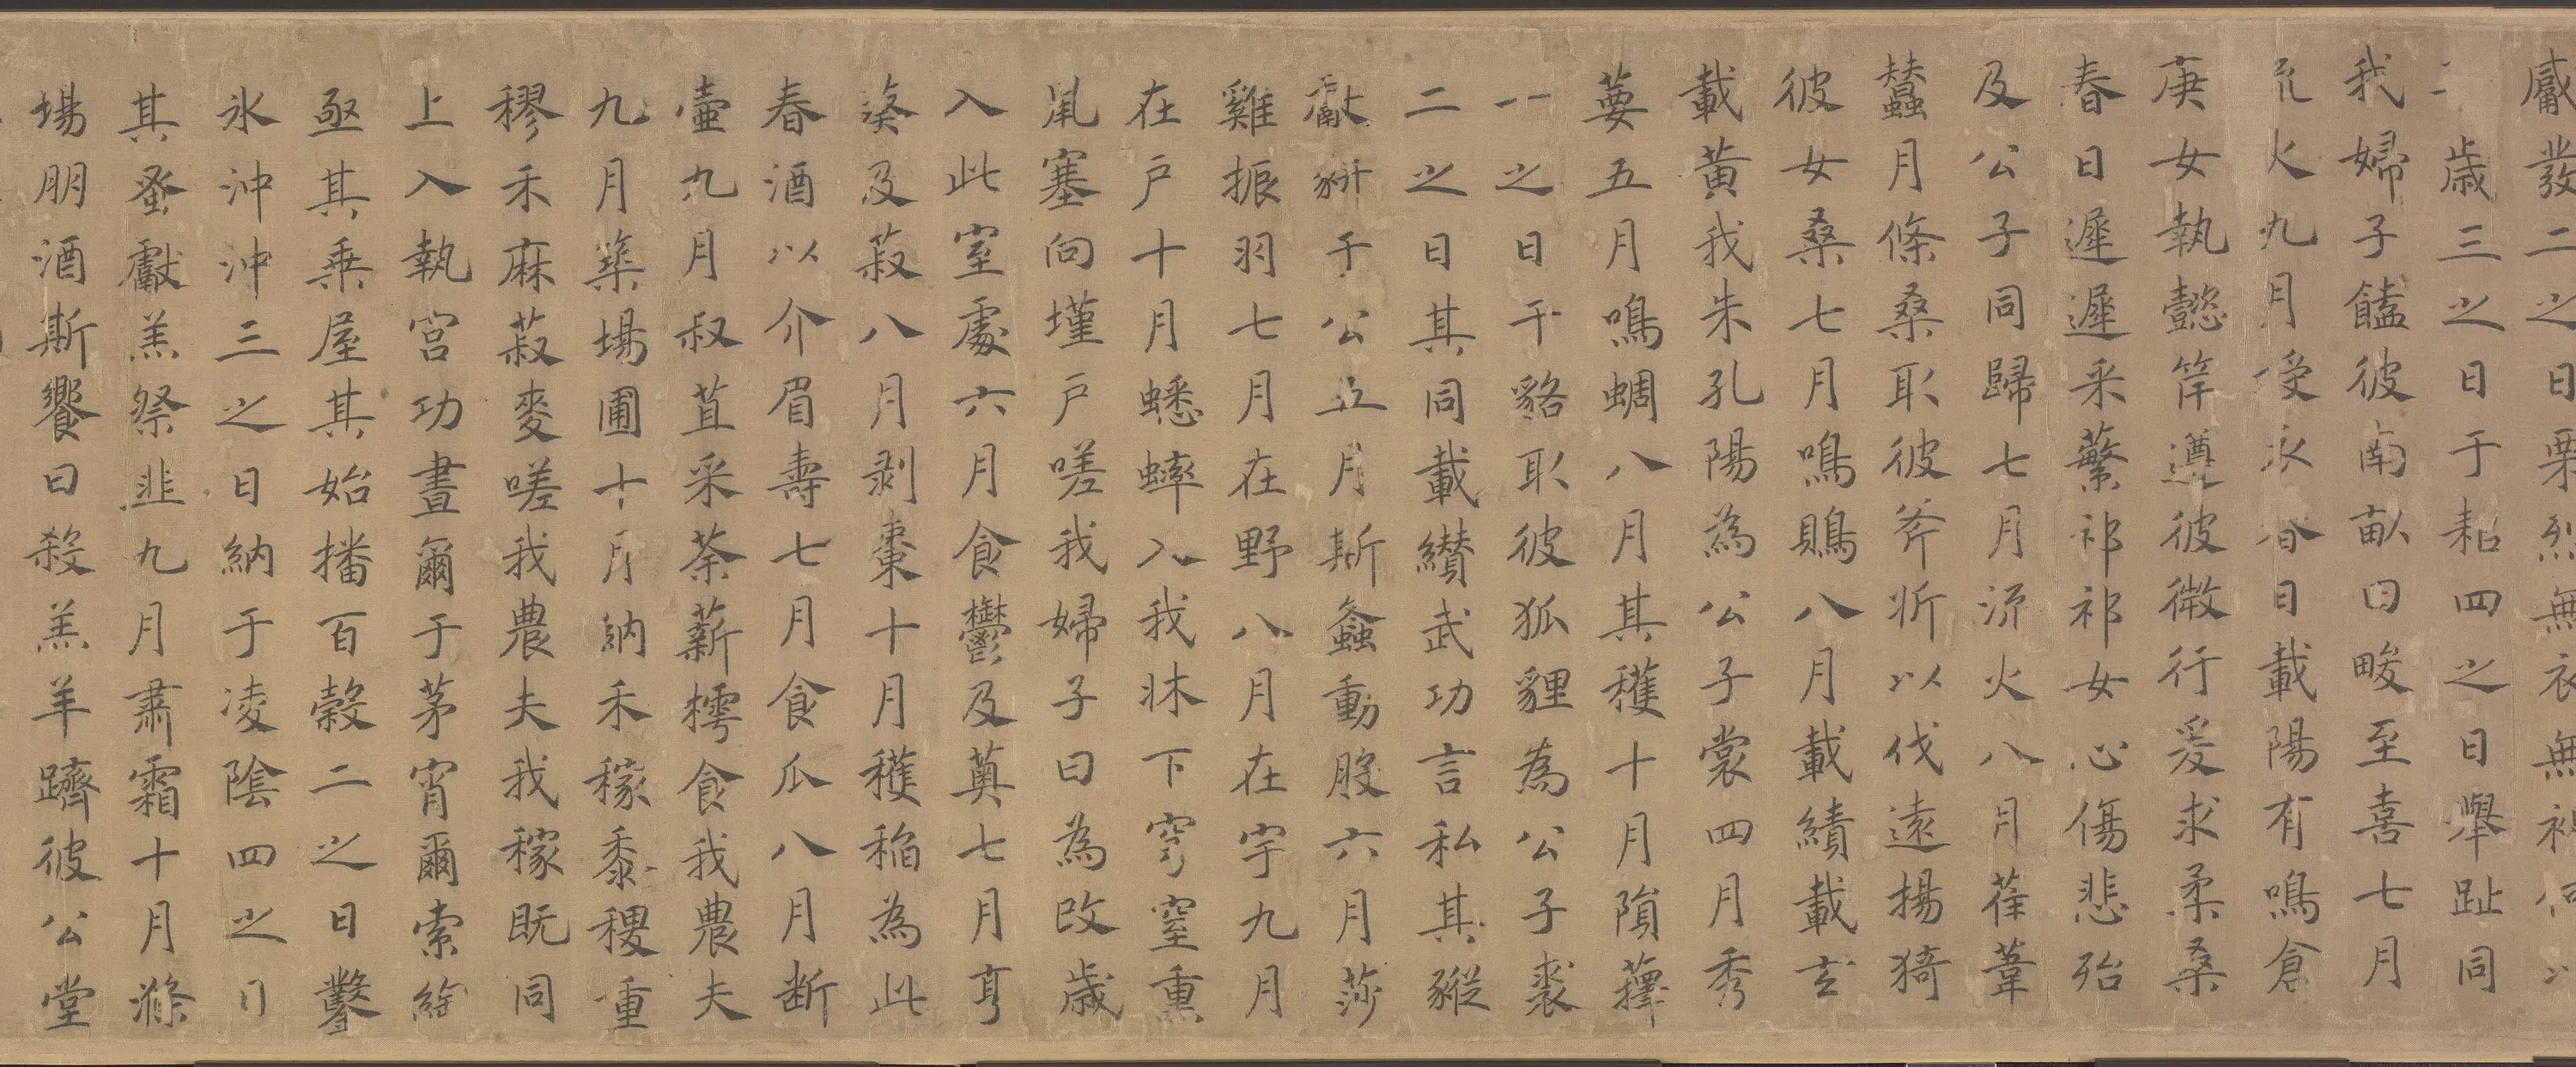 觱發二之日栗烈無衣無褐何以
歲三之日于耜四之日舉趾同
我婦子饁彼南畝田畯至喜七月
流火九月授衣春日載陽有鳴倉
庚女執懿筐遵彼微行爰求柔桑
春日遲遲采蘩祁祁女心傷悲殆
及公子同歸七月流火八月萑葦
蠶月條桑取彼斧斨以伐遠揚猗
彼女桑七月鳴鵙八月載績載玄
載黃我朱孔陽為公子裳四月秀
葽五月鳴蜩八月其穫十月隕蘀
一之日于貉取彼狐貍為公子裘
二之日其同載纘武功言私其豵
獻豜于公五月斯螽動股六月莎
雞振羽七月在野八月在宇九月
在戶十月蟋蟀入我牀下穹窒熏
鼠塞向墐戶嗟我婦子曰為改歲
入此室處六月食鬱及薁七月亨
葵及菽八月剥棗十月穫稻為此
春酒以介眉壽七月食瓜八月斷
壺九月叔苴采荼薪樗食我農夫
九月築場圃十月納禾稼黍稷重
穋禾麻菽麥嗟我農夫我稼既同
上入執宮功晝爾于茅宵爾索綯
亟其乗屋其始播百穀二之日鑿
氷沖沖三之日納于凌陰四之日
其蚤獻羔祭韭九月肅霜十月滌
場朋酒斯饗曰殺羔羊躋彼公堂